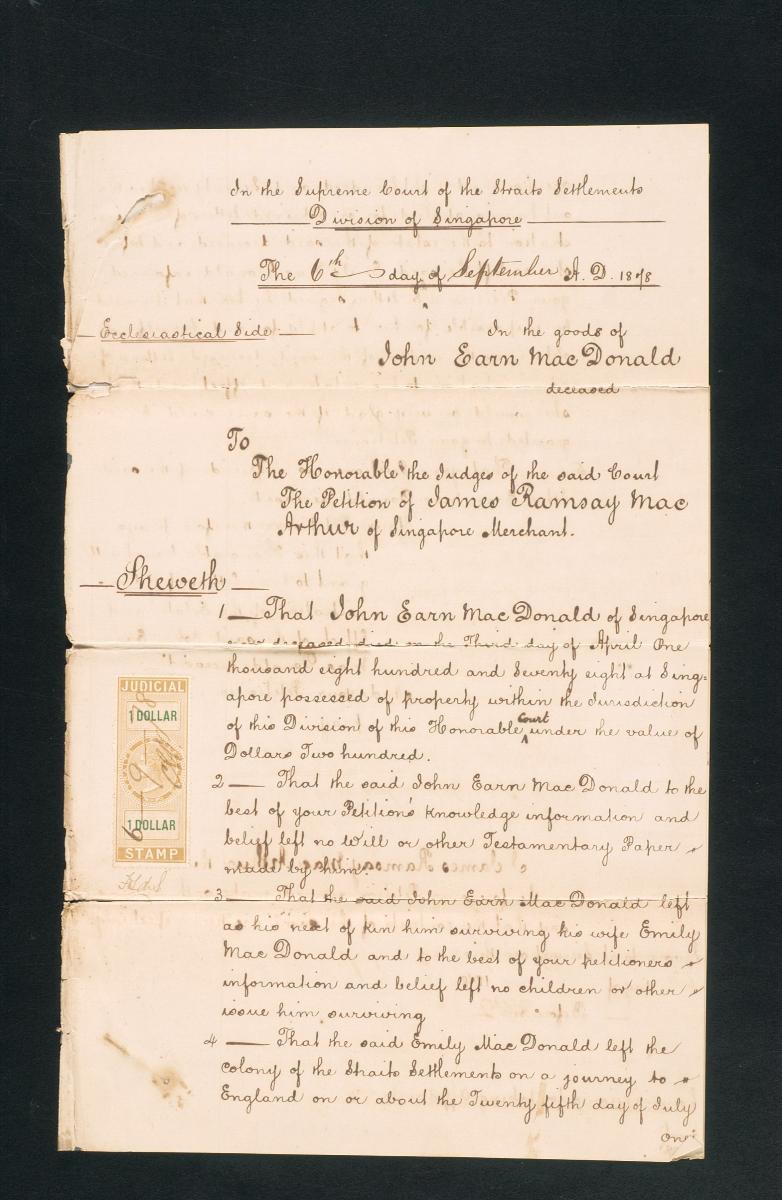 In the Supreme Court of the Straits Settlements
Division of Singapore
The 6th day of September A. D. 1878
Ecclesiastical Side
In the goods of
John Earn Mac Donald
deceased
To
The Honorable the Judges of the said Court
The Petition of James Ramsay Mac
Arthur of Singapore Merchant.
Sheweth
1 — That John Earn Mac Donald of Singapore
now deceased died on the Third day of April One
thousand eight hundred and Seventy eight at Sing=
apore possessed of property within the Jurisdiction
of this Division of this Honorable Court under the value of
Dollars Two hundred.
2 — That the said John Earn Mac Donald to the
best of your Petition's knowledge information and
belief left no Will or other Testamentary Paper
made by him.
3 — That the said John Earn Mac Donald left
as his next of kin him surviving his wife Emily
Mac Donald and to the best of your petitioners
information and belief left no children or other
issue him surviving
4 — That the said Emily Mac Donald left the
colony of the Straits Settlements on a journey to
England on or about the Twenty fifth day of July
One
JUDICIAL
1 DOLLAR
6 9 78
1 DOLLAR
STAMP